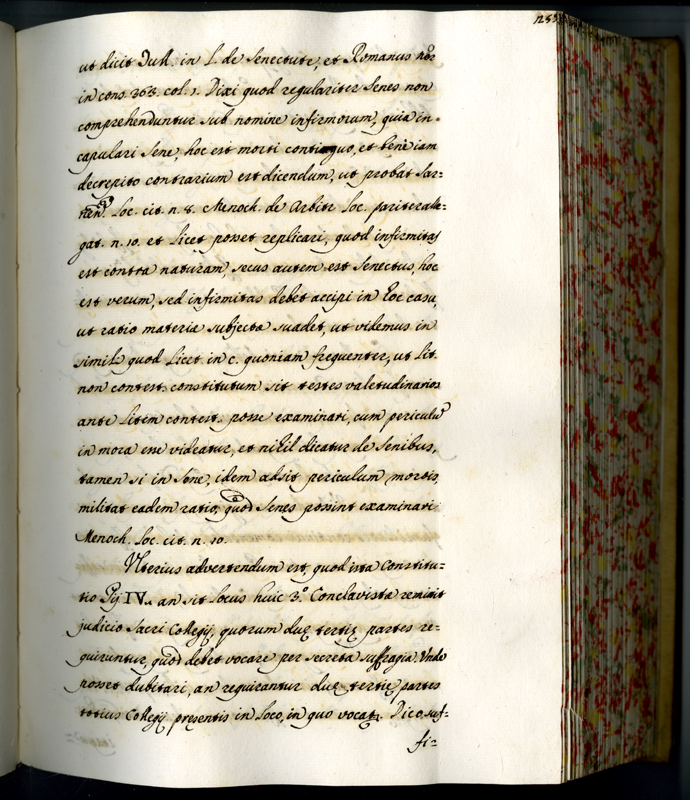 ut dicit Tull. in l. de Senectute, et Romanus
in cons. 363. col. 1. Dixi quod regulariter Senes non
comprehenduntur sub nomine infirmorum, quia in
capulari Sene, hoc est morti contiguo, et bene iam
decrepito contrarium est dicendum, ut probat Sar=
loc. cit. n. 8. Menoch. de Arbitr. loc. pariter alle=
gat. n. 10. et licet posset replicari, quod infirmitas
est contra naturam, secus autem est Senectus, hoc
est verum, sed infirmitas debet accipi in hoc casu,
ut ratio materia subjecta suadet, ut videmus in
simili quod licet in c. quoniam frequenter, ut lit.
non contest. constitutum sit testes valetudinarios
ante litem contest. posse examinari, cum periculu
in mora esse videatur, et nihil dicatur de Senibus,
tamen si in Sene, idem adsit periculum mortis,
militat eadem ratio, quod Senes possint examinari
Menoch. loc. cit. n. 10.
Ulterius advertendum est, quod ista Constitu=
tio Pij IV. an sit locus huic 3.º Conclavista remisit
judicio Sacri Collegij, quorum duę tertię partes re=
quiruntur, quod debet vocare per secreta suffragia. Unde
posset dubitari, an requirantur duę tertię partes
totius Collegij pręsentis in loco, in quo vocat. Dico, suf=
fi=